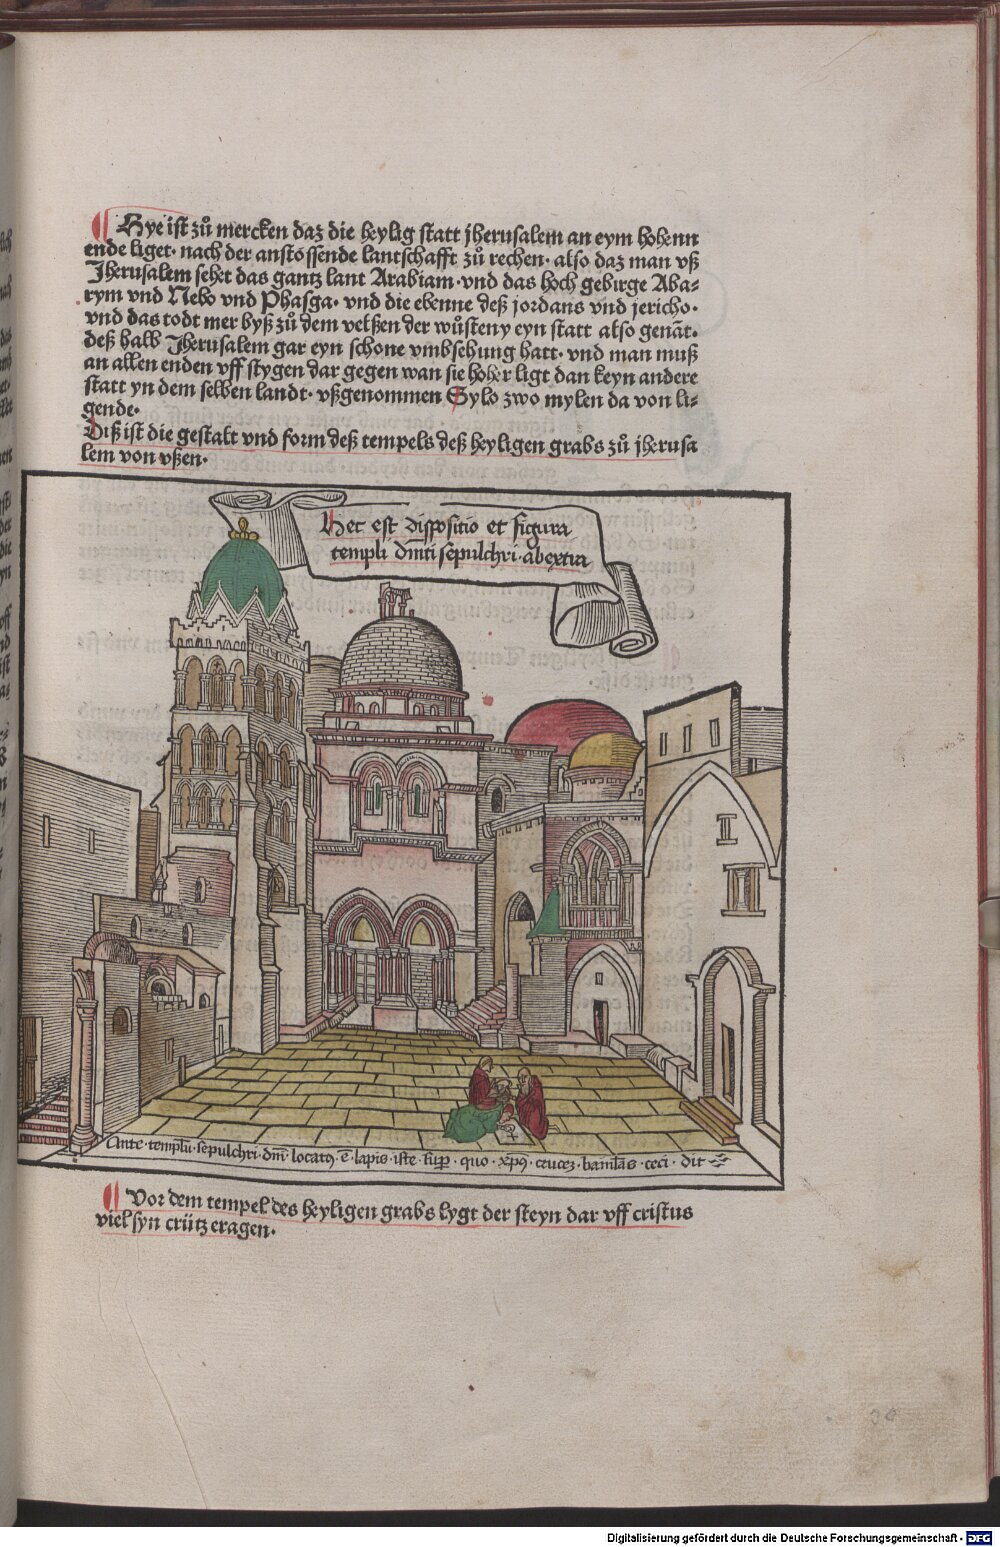 ¶ Hye ist zů mercken daz die heylig statt jherusalem an eym hohenn
ende liget· nach der anstossende lantschafft zů rechen· also daz man vß
Jherusalem sehet das gantz lant Arabiam· vnd das hoch gebirge Aba⸗
rym vnd Nebo vnd Phasga· vnd die ebenne deß jordans vnd jericho·
vnd das todt mer byß zů dem velßen der wůsteny eyn statt also genāt·
deß halb Jherusalem gar eyn schone vmbsehung hatt· vnd man muß
an allen enden vff stygen dar gegen wan sie hoher ligt dan keyn andere
statt yn dem selben landt· vßgenommen Sylo zwo mylen da von li⸗
gende·
Diß ist die gestalt vnd form deß tempels deß heyligen grabs zů jherusa
lem von vßen·
Hec est dispositio et figura
templi dn̄ici sepulchri abextra
Ante· templū· sepulchri· dn̄i· locatꝰ· ē· lapis· iste· sup̄· quo· xp̄ꝰ· crucez· baiulās· ceci· dit
¶ Vor dem tempel des heyligen grabs lygt der steyn dar vff cristus
viel syn crütz tragen·
Digitalisierung gefördert durch die Deutsche Forschungsgemeinschaft · DFG